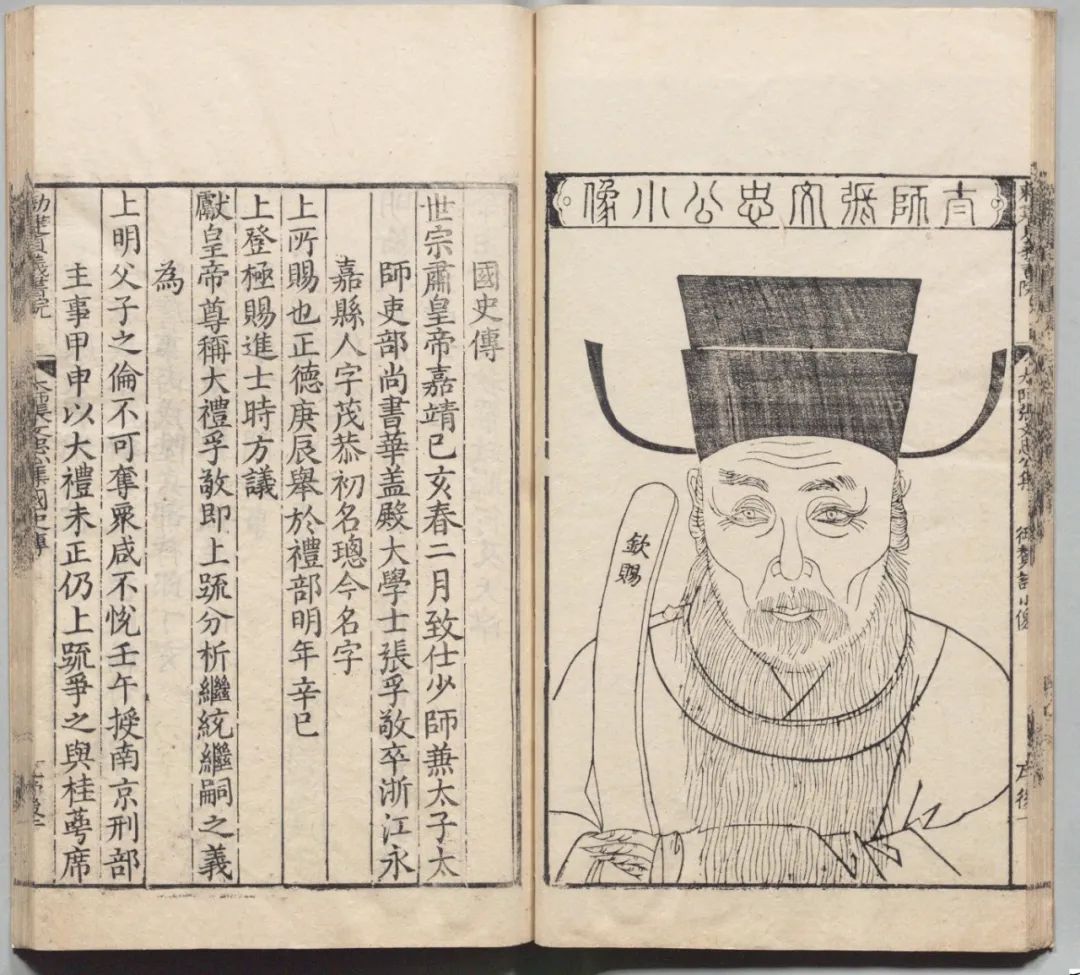 太師張文忠公小像
欽賜
國史傳
世宗肅皇帝嘉靖己亥春二月致仕少師兼太子太
師吏部尚書華蓋殿大學士張孚敬卒浙江永
嘉縣人字茂恭初名璁今名字
上所賜也正德庚辰舉於禮部明年辛巳
上登極賜進士時方議
獻皇帝尊稱大禮孚敬即上疏分析繼統繼嗣之義
為
上明父子之倫不可奪眾咸不悅壬午授南京刑部
主事甲申以大禮未正仍上疏爭之與桂萼席